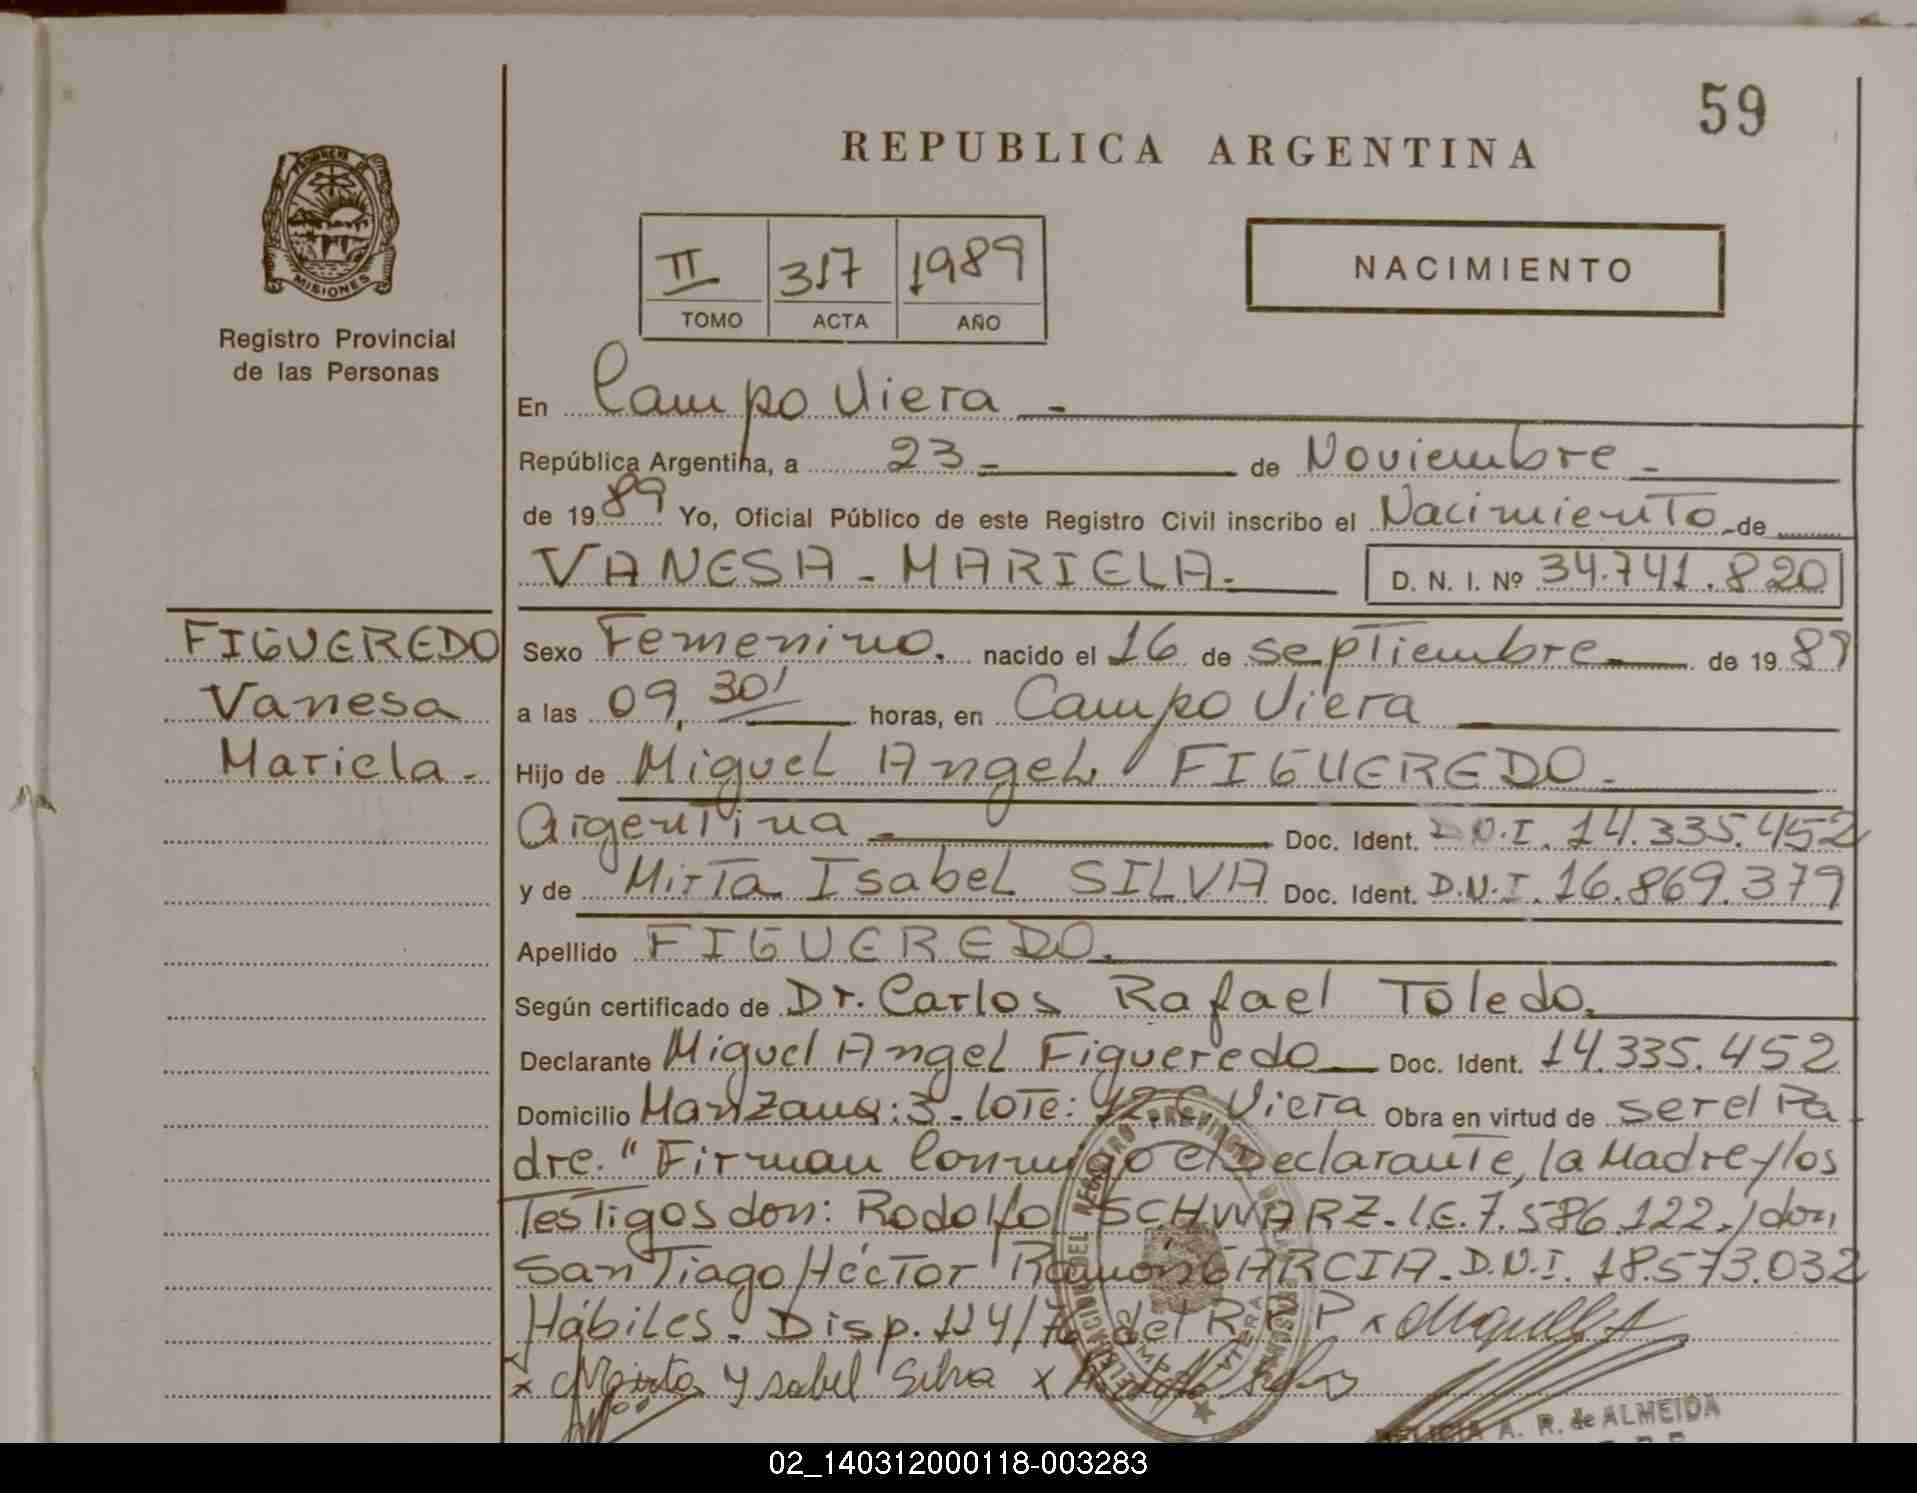 59
REPUBLICA ARGENTINA
PROVINCIA DE
MISIONES
Registro Provincial
de las Personas
II 317 1989
TOMO ACTA AÑO
NACIMIENTO
En Campo Viera -
República Argentina, a 23 - de Noviembre -
de 19 89 Yo, Oficial Público de este Registro Civil inscribo el Nacimiento de
VANESA - MARIELA. D. N. I. Nº 34.741.820
FIGUEREDO
Vanesa
Mariela -
Sexo Femenino. nacido el 16 de septiembre de 19 89
a las 09,30' horas, en Campo Viera
Hijo de Miguel Angel FIGUEREDO -
Argentina - Doc. Ident. D.N.I. 14.335.452
y de Mirta Isabel SILVA Doc. Ident. D.N.I. 16.869.379
Apellido FIGUEREDO.
Según certificado de Dr. Carlos Rafael Toledo.
Declarante Miguel Angel Figueredo Doc. Ident. 14.335.452
Domicilio Manzana: 3 - lote: 12 C. Viera Obra en virtud de ser el Pa
dre. " Firman Conmigo el Declarante, la Madre y los
Testigos don: Rodolfo SCHWARZ - L.E. 7.586.122. y don
Santiago Héctor Ramón GARCIA - D.N.I. 18.573.032
Hábiles. Disp. 124/76 del R. P. P x
x Mirta Ysabel Silva x
A. R. de ALMEIDA
02_140312000118-003283